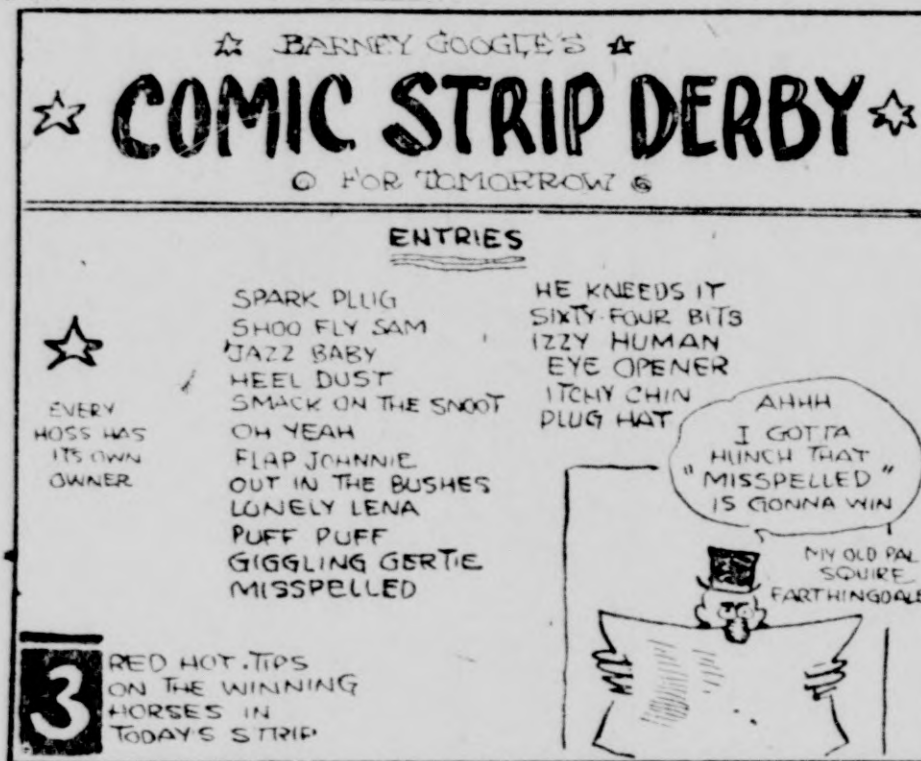 BARNEY GOOGLE'S
COMIC STRIP DERBY
FOR TOMORROW
ENTRIES
EVERY
HOSS HAS
ITS OWN
OWNER
SPARK PLUG
SHOO FLY SAM
JAZZ BABY
HEEL DUST
SMACK ON THE SNOOT
OH YEAH
FLAP JOHNNIE
OUT IN THE BUSHES
LONELY LENA
PUFF PUFF
GIGGLING GERTIE
MISSPELLED
HE KNEEDS IT
SIXTY-FOUR BITS
IZZY HUMAN
EYE OPENER
ITCHY CHIN
PLUG HAT
AHHH
I GOTTA
HUNCH THAT
"MISSPELLED"
IS GONNA WIN
MY OLD PAL
SQUIRE
FARTHINGDALE
3
RED HOT TIPS
ON THE WINNING
HORSES IN
TODAY'S STRIP